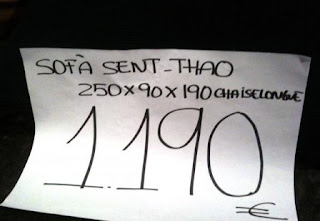 SOFÀ SENT-THAO
250x90x190 CHAISELONGUE
1.190
€